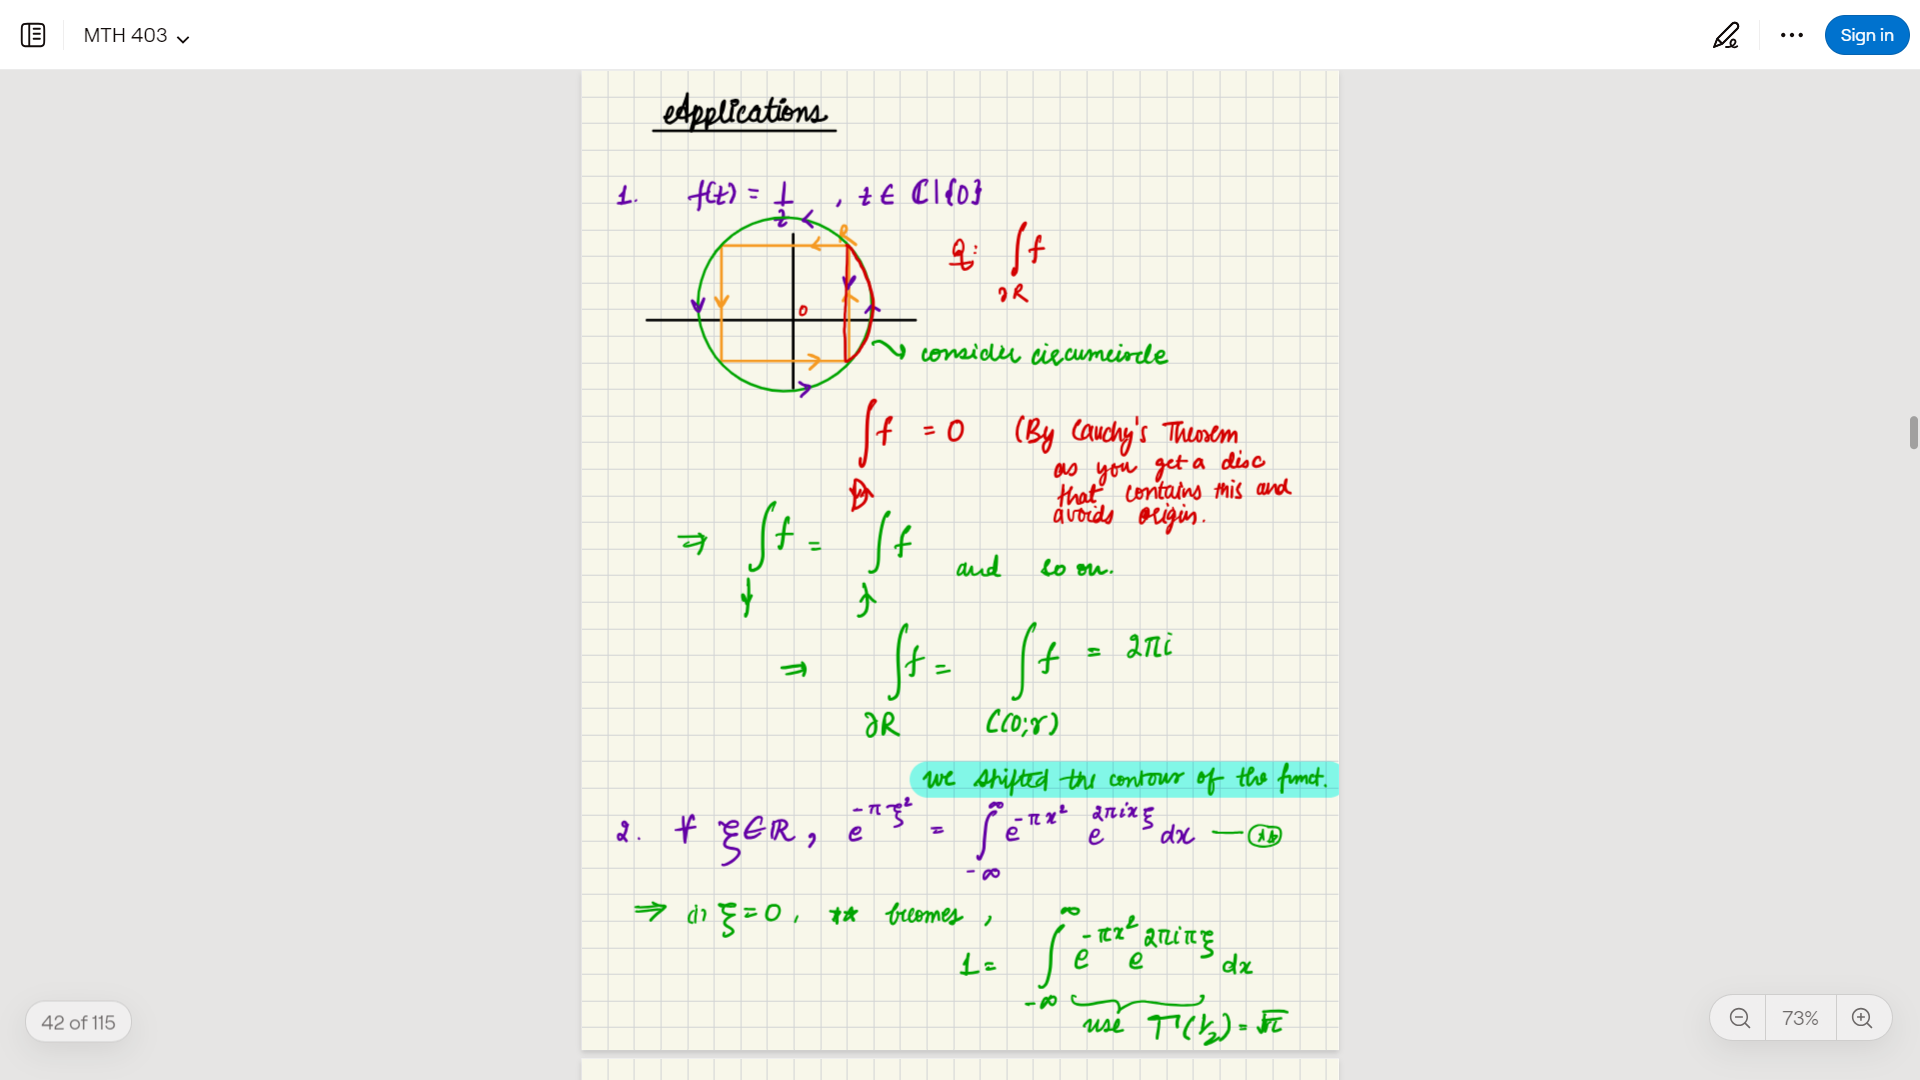 MTH 403
Sign in
Applications
1. f(z) = 1/z , z ∈ ℂ\{0}
R
0
Q: ∫_∂R f
consider circumcircle
∫ f = 0 (By Cauchy's Theorem
as you get a disc
that contains this and
avoids origin.
⇒ ∫ f = ∫ f and so on.
⇒ ∫_∂R f = ∫_C(0;r) f = 2πi
we shifted the contour of the funct.
2. ∀ ξ ∈ ℝ, e^{-πξ²} = ∫_{-∞}^{∞} e^{-πx²} e^{2πixξ} dx — (**)
⇒ (i) ξ = 0, ** becomes,
1 = ∫_{-∞}^{∞} e^{-πx²} e^{2πiπξ} dx
use Γ(1/2) = √π
42 of 115
73%